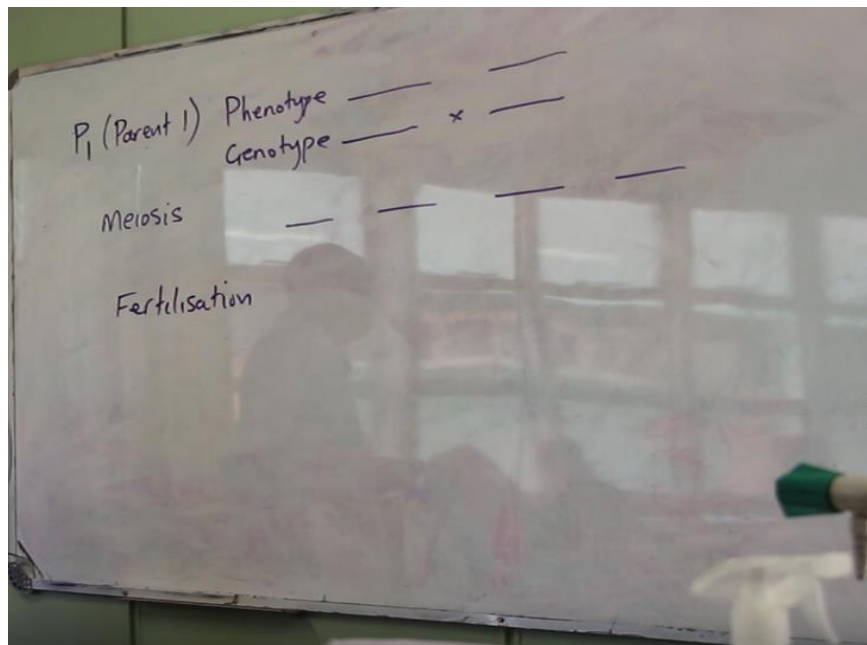 P1 (Parent 1) Phenotype __ __
Genotype __ x __
Meiosis __ __ __ __
Fertilisation